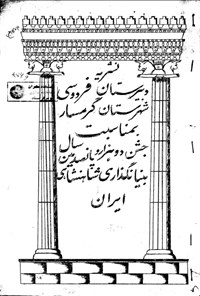 نشریه
دبیرستان فردوسی
شهرستان گرمسار
بمناسبت
جشن دوهزار و پانصدمین سال
بنیانگذاری شاهنشاهی
ایران